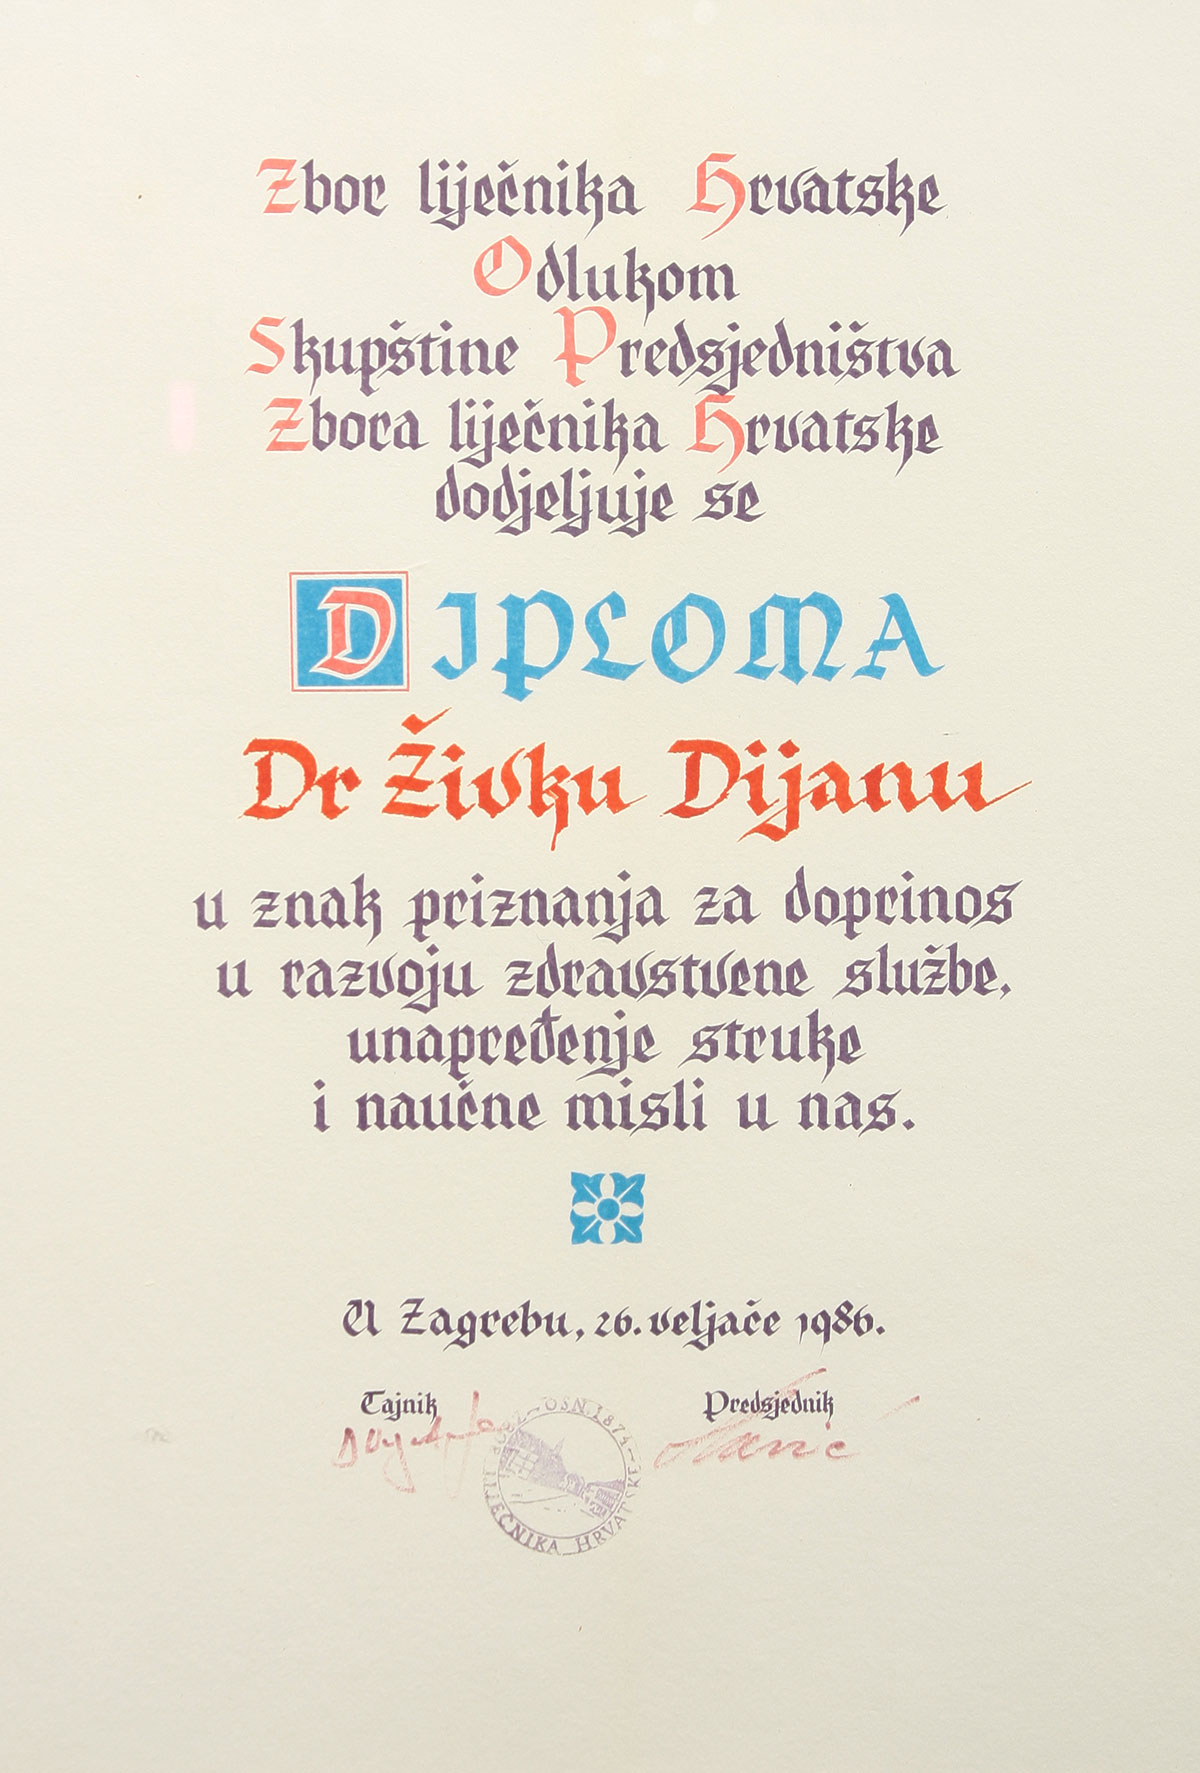 Zbor liječnika Hrvatske
Odlukom
Skupštine Predsjedništva
Zbora liječnika Hrvatske
dodjeljuje se
DIPLOMA
Dr Živku Dijanu
u znak priznanja za doprinos
u razvoju zdravstvene službe,
unapređenje struke
i naučne misli u nas.
U Zagrebu, 26. veljače 1986.
Tajnik
Predsjednik
ZBOR LIJEČNIKA HRVATSKE – OSN. 1874 –